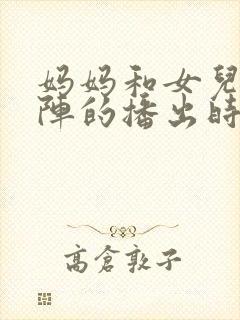 妈妈和女兒
陣的播出時
高倉敦子